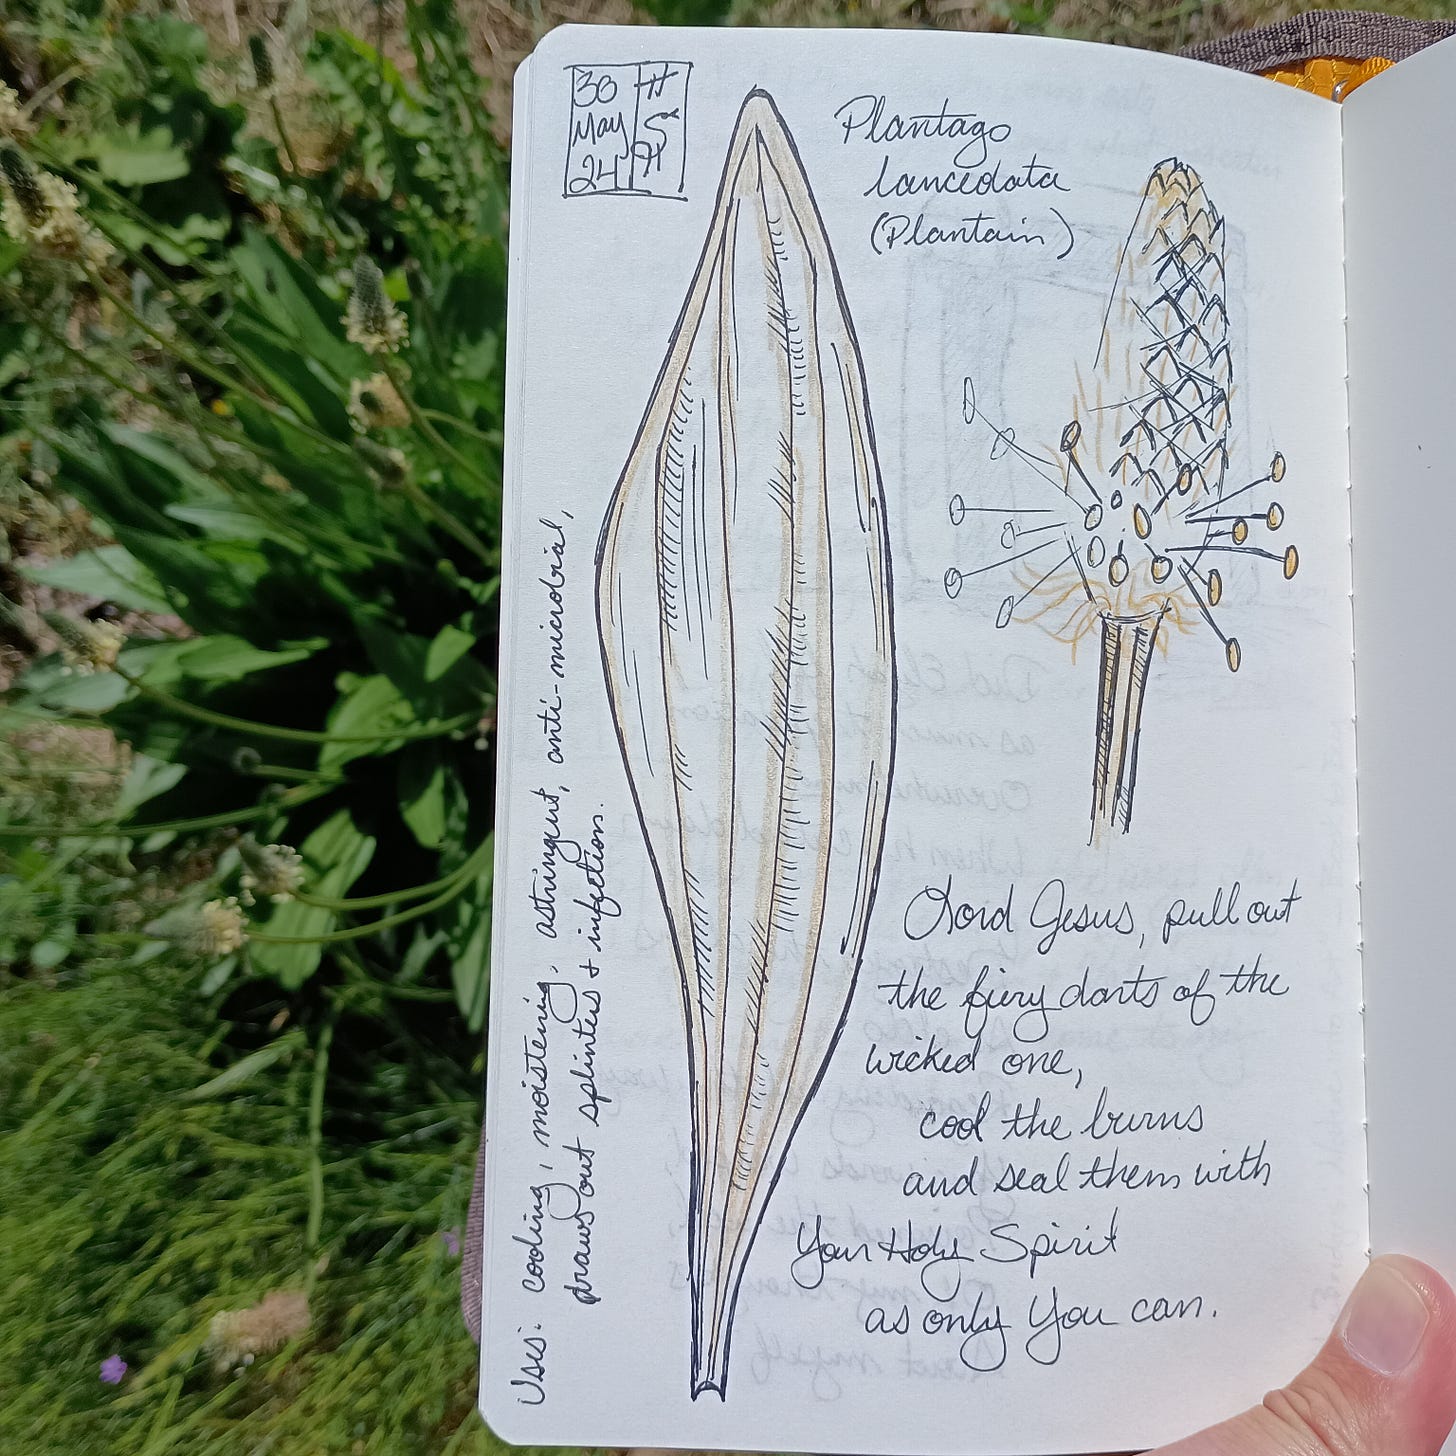 30
May
24
Plantago
lanceolata
(Plantain)
Uses: cooling, moistening, astringent, anti-microbial,
draws out splinters + infection.
Lord Jesus, pull out
the fiery darts of the
wicked one,
cool the burns
and seal them with
Your Holy Spirit
as only You can.